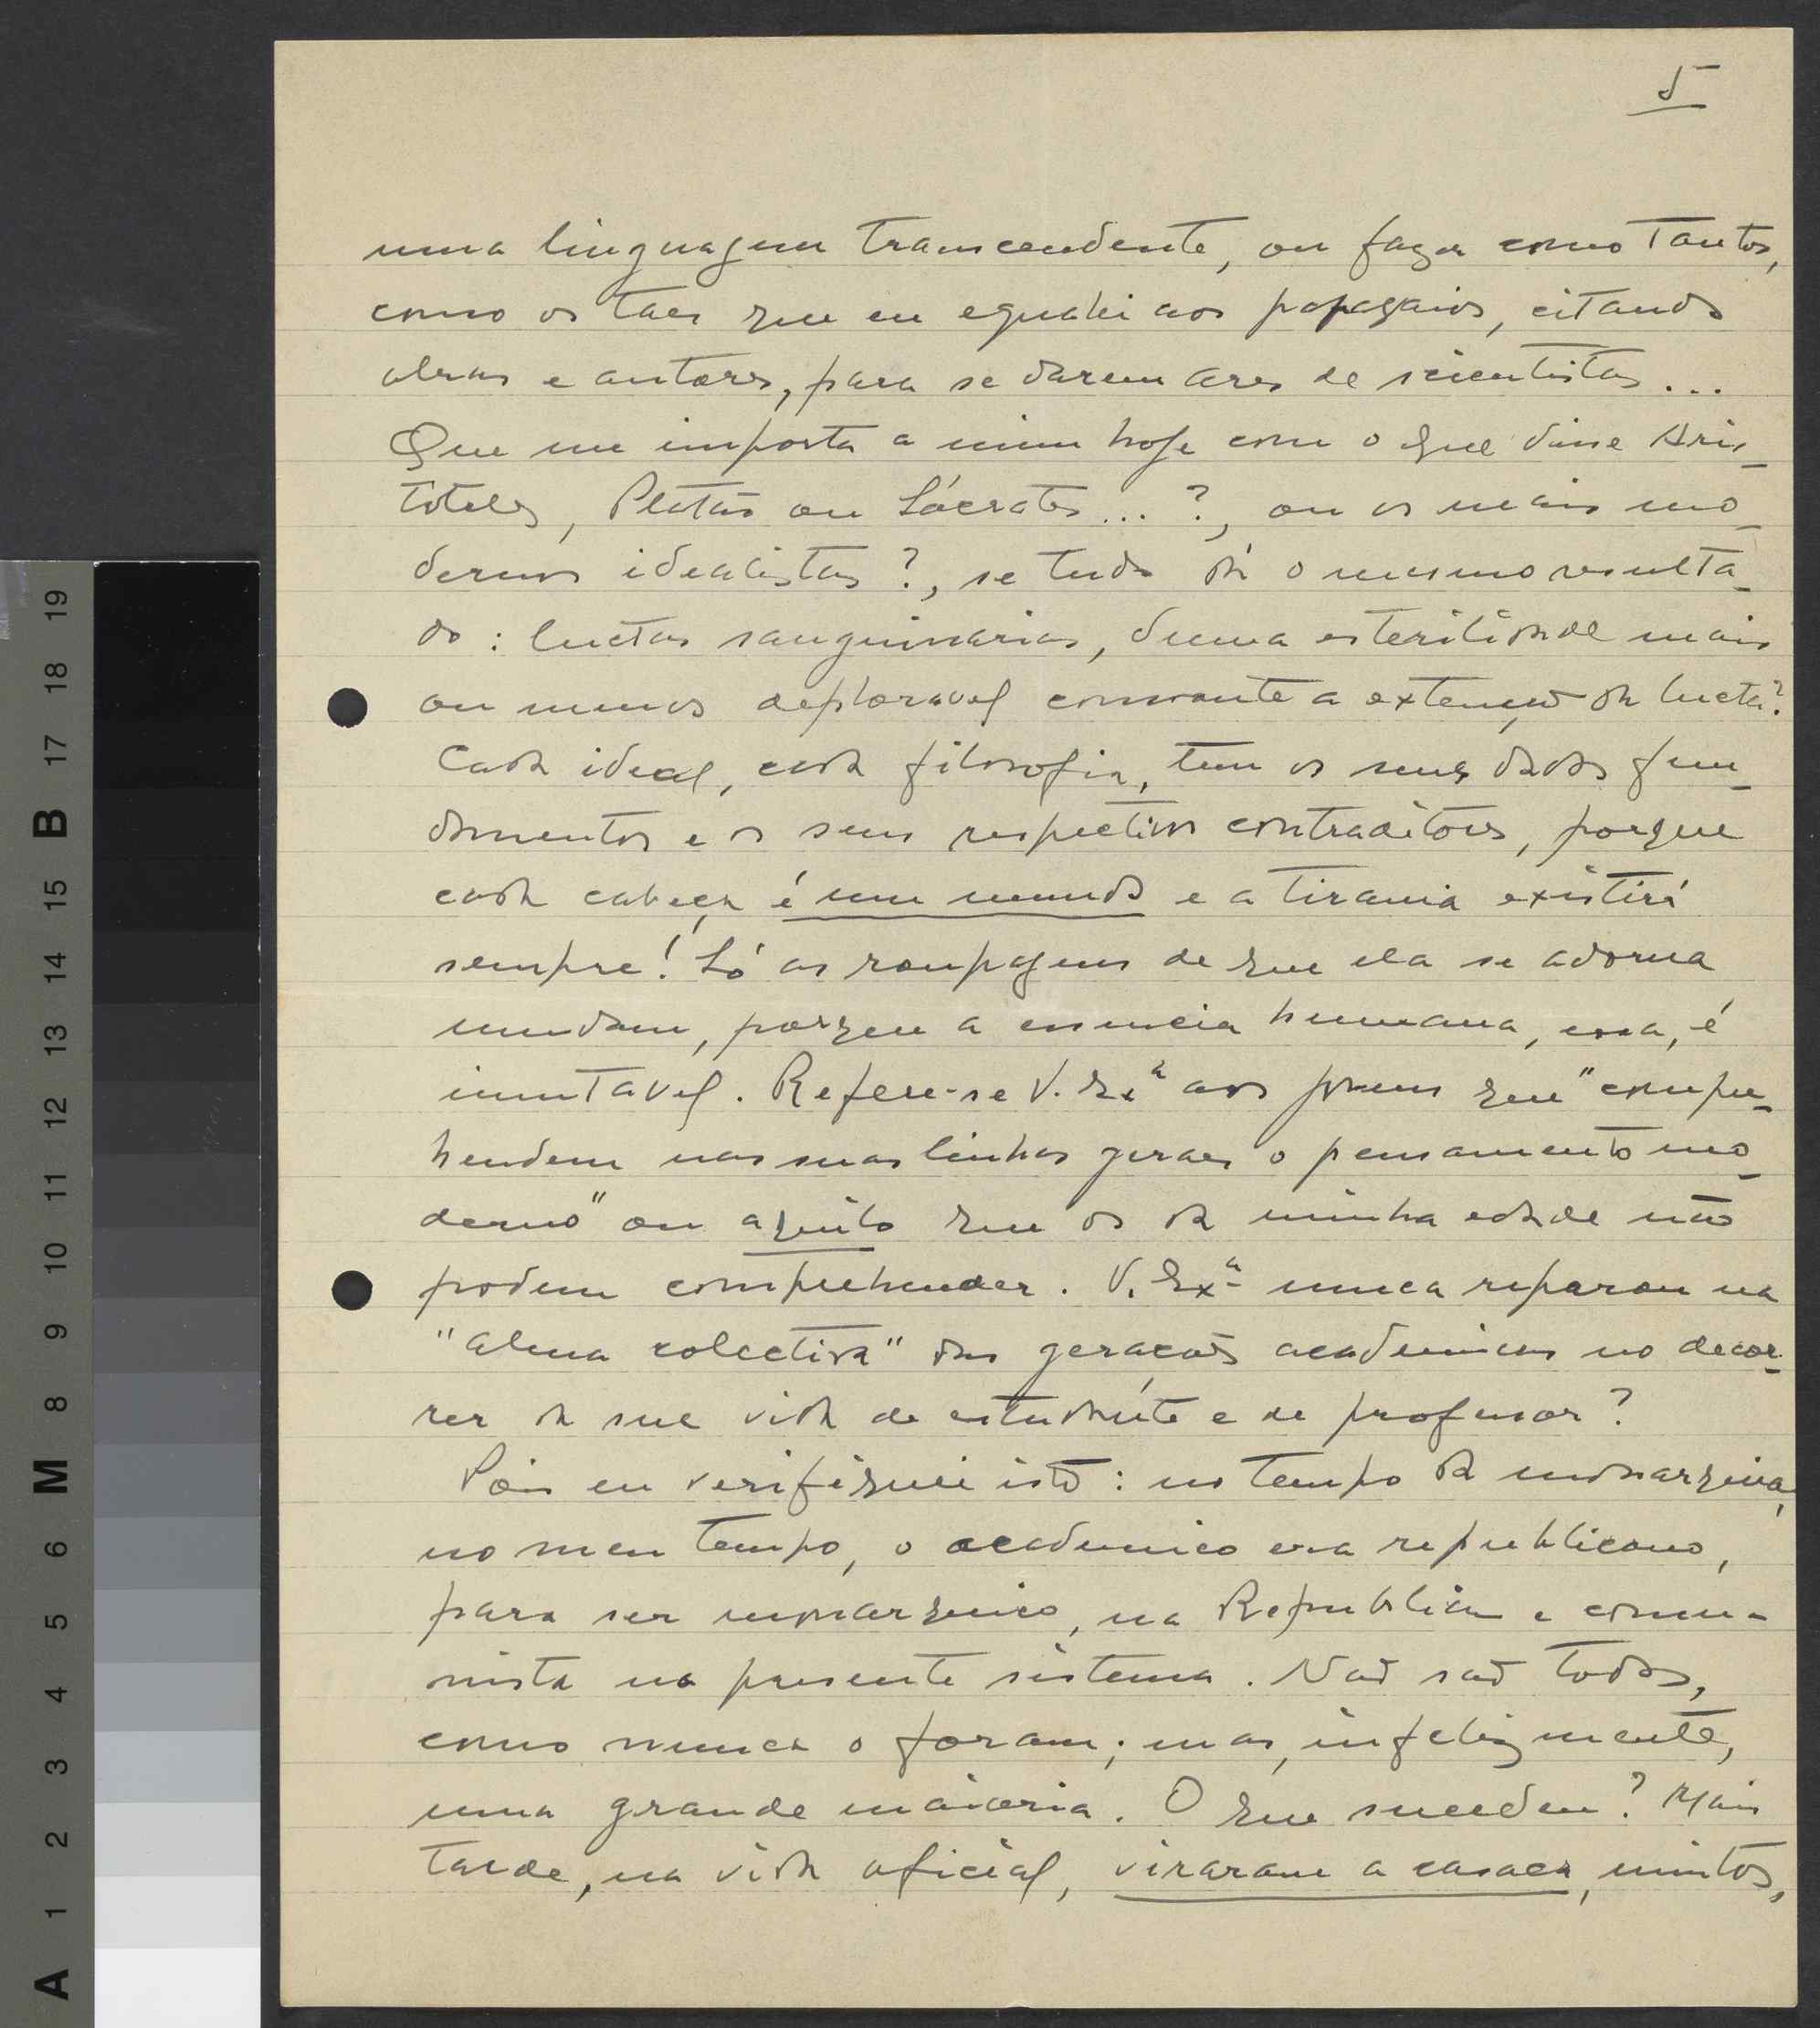 5
uma linguagem transcendente, ou faça como tantos,
como os taes que eu egualei aos papagaios, citando
obras e autores, para se darem ares de scientistas...
Que me importa a mim hoje com o que disse Aris-
toteles, Platão ou Sócrates...?, ou os mais mo-
dernos idealistas?, se tudo dá o mesmo resulta-
do: luctas sanguinarias, duma esterilidade mais
ou menos deploravel consoante a extensão da lucta?
Cada ideal, cada filosofia, tem os seus dados fun-
damentos e os seus respectivos contraditores, porque
cada cabeça é um mundo e a tirania existirá
sempre! Só as roupagens de que ela se adorna
mudam, porque a essencia humana, essa, é
imutavel. Refere-se V. Exª aos jovens que "compre-
hendem nas suas linhas geraes o pensamento mo-
derno" ou aquilo que os da minha edade não
podem comprehender. V. Exª nunca reparou na
"alma colectiva" das gerações academicas no decor-
rer da sua vida de estudante e de professor?
Pois eu verifiquei isto: no tempo da monarquia,
no meu tempo, o academico era republicano,
para ser monarquico, na Republica e comu-
nista no presente sistema. Não são todos,
como nunca o foram; mas, infelizmente,
uma grande maioria. O que sucedeu? Mais
tarde, na vida oficial, viraram a casaca, muitos,
19
18
17
B
16
15
14
13
12
11
10
9
8
M
7
6
5
4
3
2
1
A